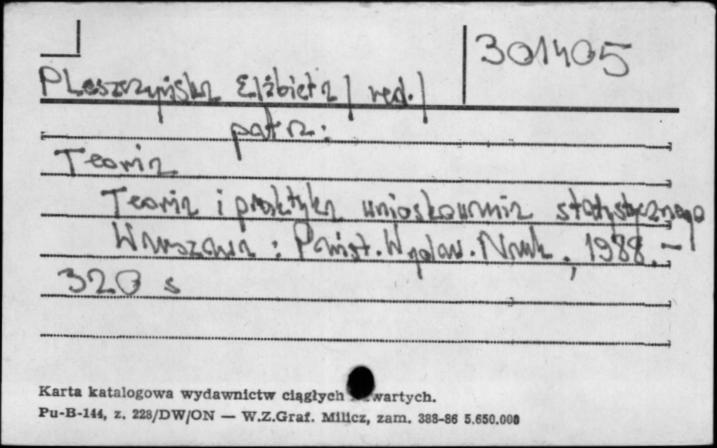 301405
Pleszczyńska Elżbieta / red./
patrz:
Teoria
Teoria i praktyka wnioskowania statystycznego
Warszawa : Państ. Wydaw. Nauk., 1988. -
320 s
Karta katalogowa wydawnictw ciągłych wartych.
Pu-B-144, z. 228/DW/ON — W.Z.Graf. Milicz, zam. 388-86 5.650.000